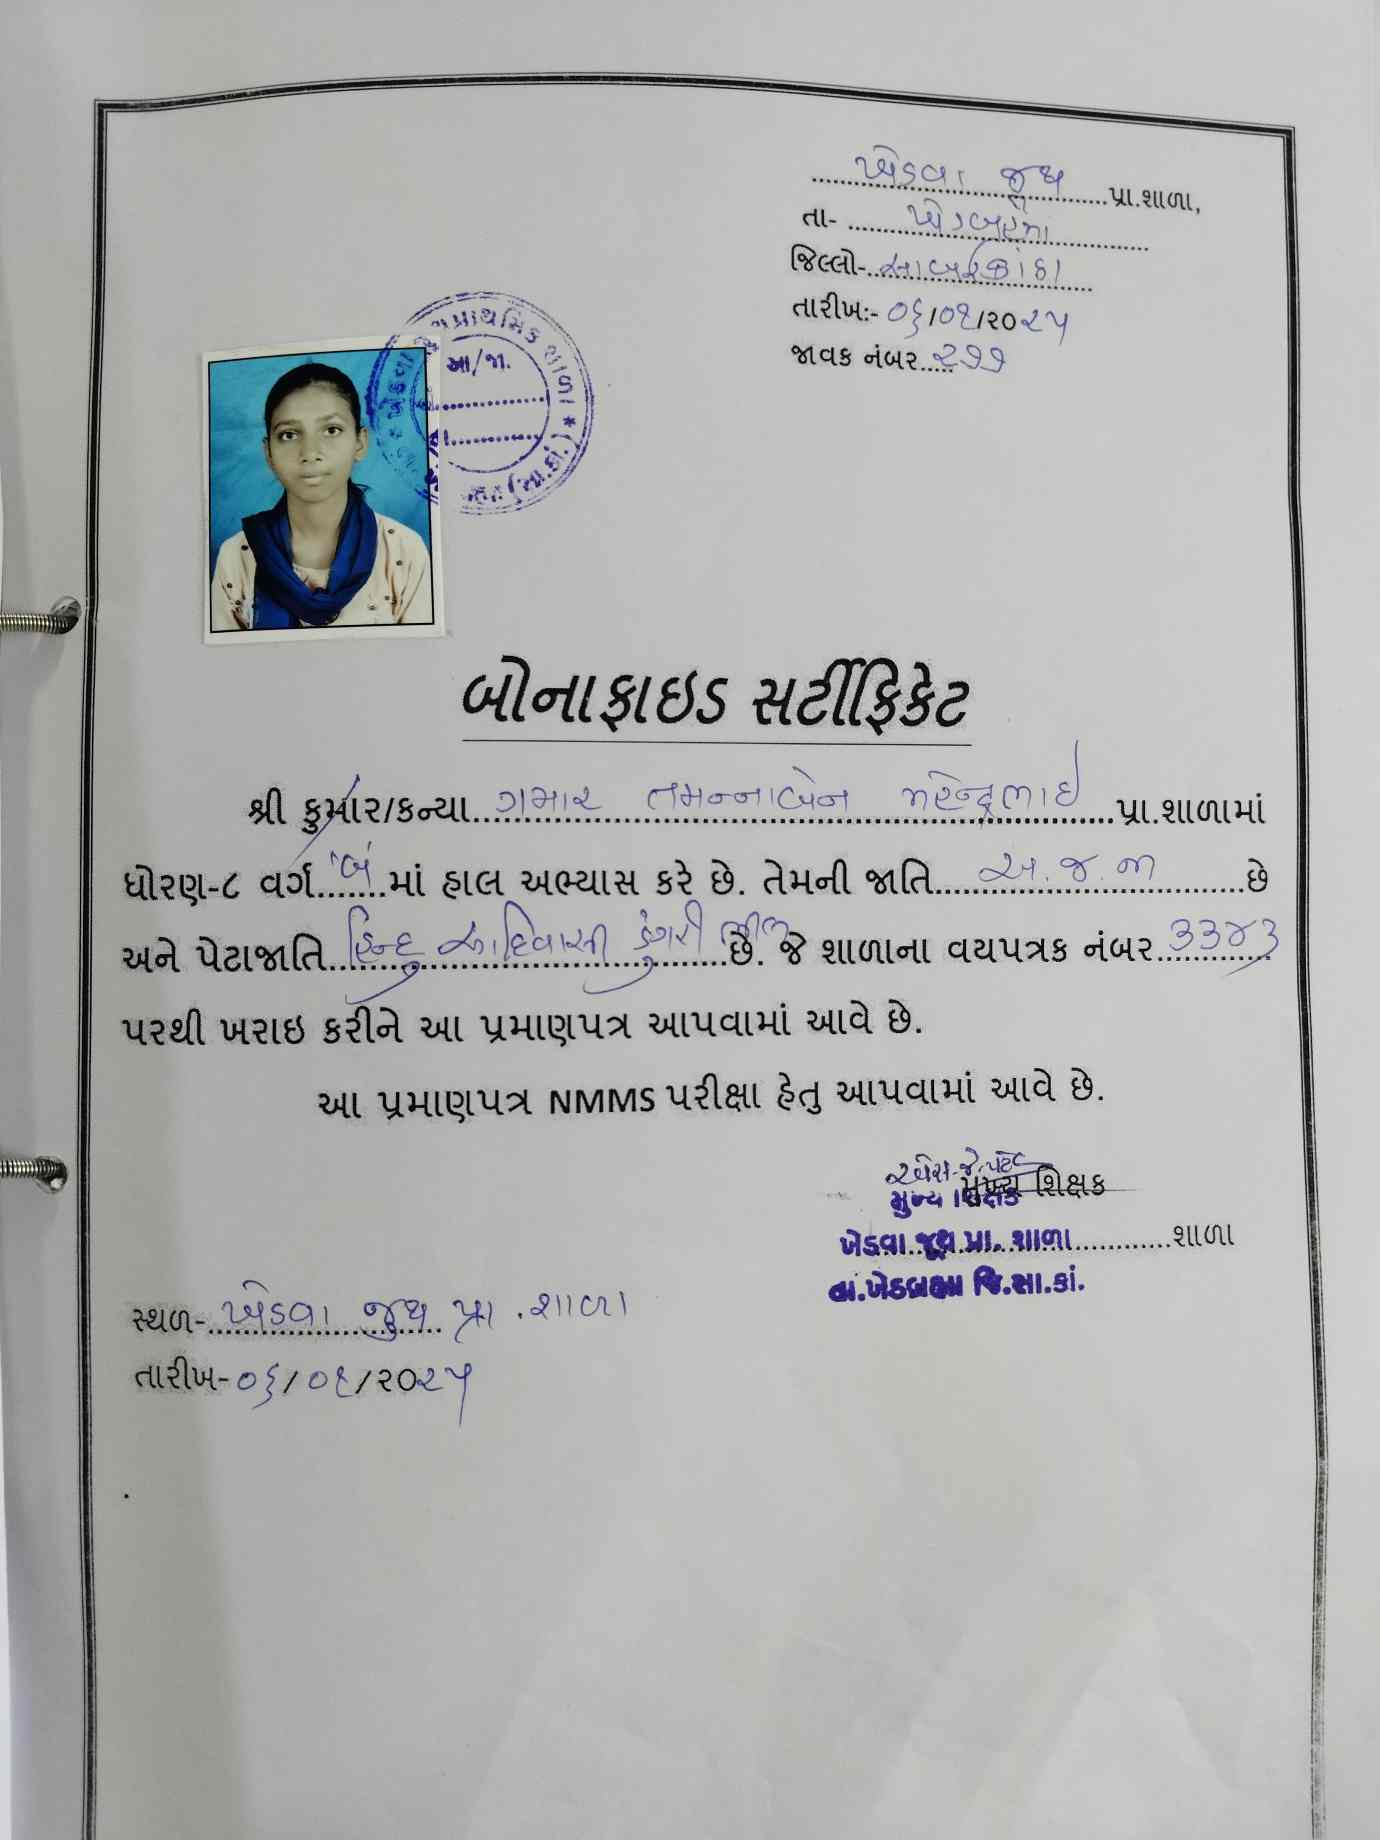 ખેડવા જુથ પ્રા.શાળા,
તા- ખેડબ્રહ્મા
જિલ્લો- સાબરકાંઠા
તારીખઃ- ૦૬/૦૧/૨૦૨૫
જાવક નંબર ૨૭૭
પ્રાથમિક શાળા * (સા.કાં.)
આ/જા.
બોનાફાઇડ સર્ટીફિકેટ
શ્રી કુમાર/કન્યા ગમાર તમન્નાબેન નરેન્દ્રભાઇ પ્રા.શાળામાં
ધોરણ-૮ વર્ગ 'બ' માં હાલ અભ્યાસ કરે છે. તેમની જાતિ અ.જ.જા છે
અને પેટાજાતિ હિન્દુ આદિવાસી ડુંગરી ભીલ છે. જે શાળાના વયપત્રક નંબર ૩૩૪૩
પરથી ખરાઇ કરીને આ પ્રમાણપત્ર આપવામાં આવે છે.
આ પ્રમાણપત્ર NMMS પરીક્ષા હેતુ આપવામાં આવે છે.
એસ.જે.પટેલ
મુખ્ય શિક્ષક
મુખ્ય શિક્ષક
ખેડવા જુથ પ્રા. શાળા શાળા
તા.ખેડબ્રહ્મા જિ.સા.કાં.
સ્થળ- ખેડવા જુથ પ્રા. શાળા
તારીખ- ૦૬/૦૧/૨૦૨૫